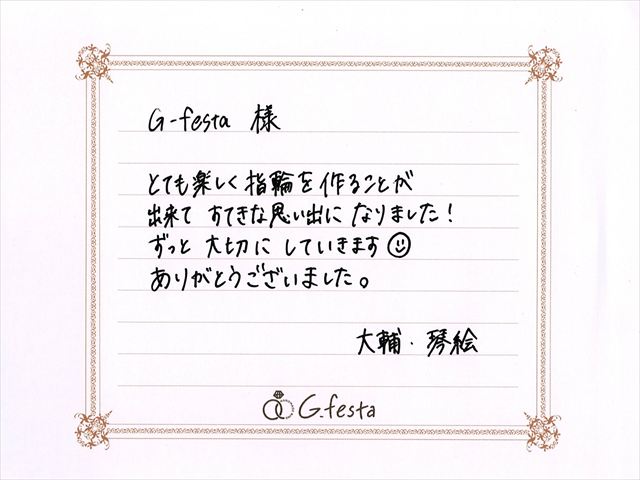 G-festa 様
とても楽しく指輪を作ることが
出来て すてきな思い出に なりました!
ずっと 大切に していきます☺
ありがとうございました。
大輔・琴絵
G-festa